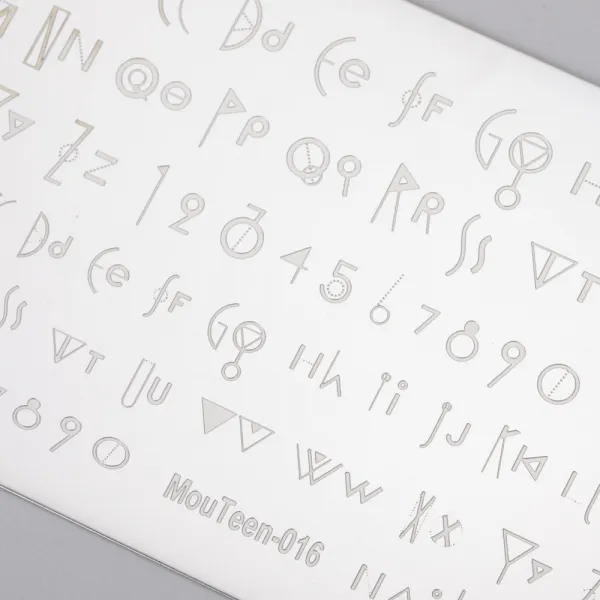 Dd Ee Ff Gg H
Nn Oo Pp Qq Rr Ss Tt
y Zz 1 2 3 4 5 6 7 8 9 0
Dd Ee Ff Gg Hh Ii Jj Kk L
Ss Tt Uu Vv Ww Xx Yy
8 9 0
MouTeen-016